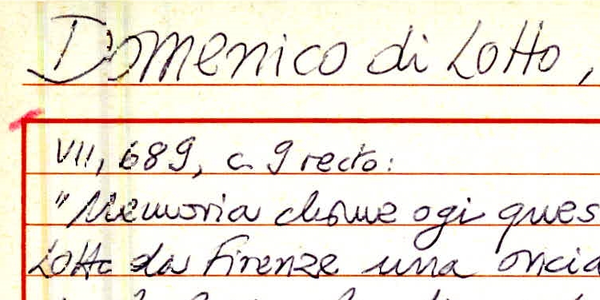 Domenico di Lotto,
VII, 689, c. 9 recto:
"Memoria chome ogi ques
Lotto da Firenze una oncia